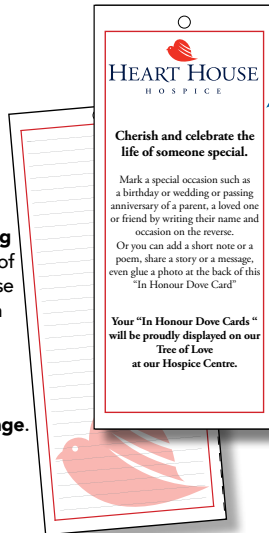 HEART HOUSE
HOSPICE
Cherish and celebrate the
life of someone special.
Mark a special occasion such as
a birthday or wedding or passing
anniversary of a parent, a loved one
or friend by writing their name and
occasion on the reverse.
Or you can add a short note or a
poem, share a story or a message,
even glue a photo at the back of this
"In Honour Dove Card"
Your "In Honour Dove Cards “
will be proudly displayed on our
Tree of Love
at our Hospice Centre.
g
of
se
age.